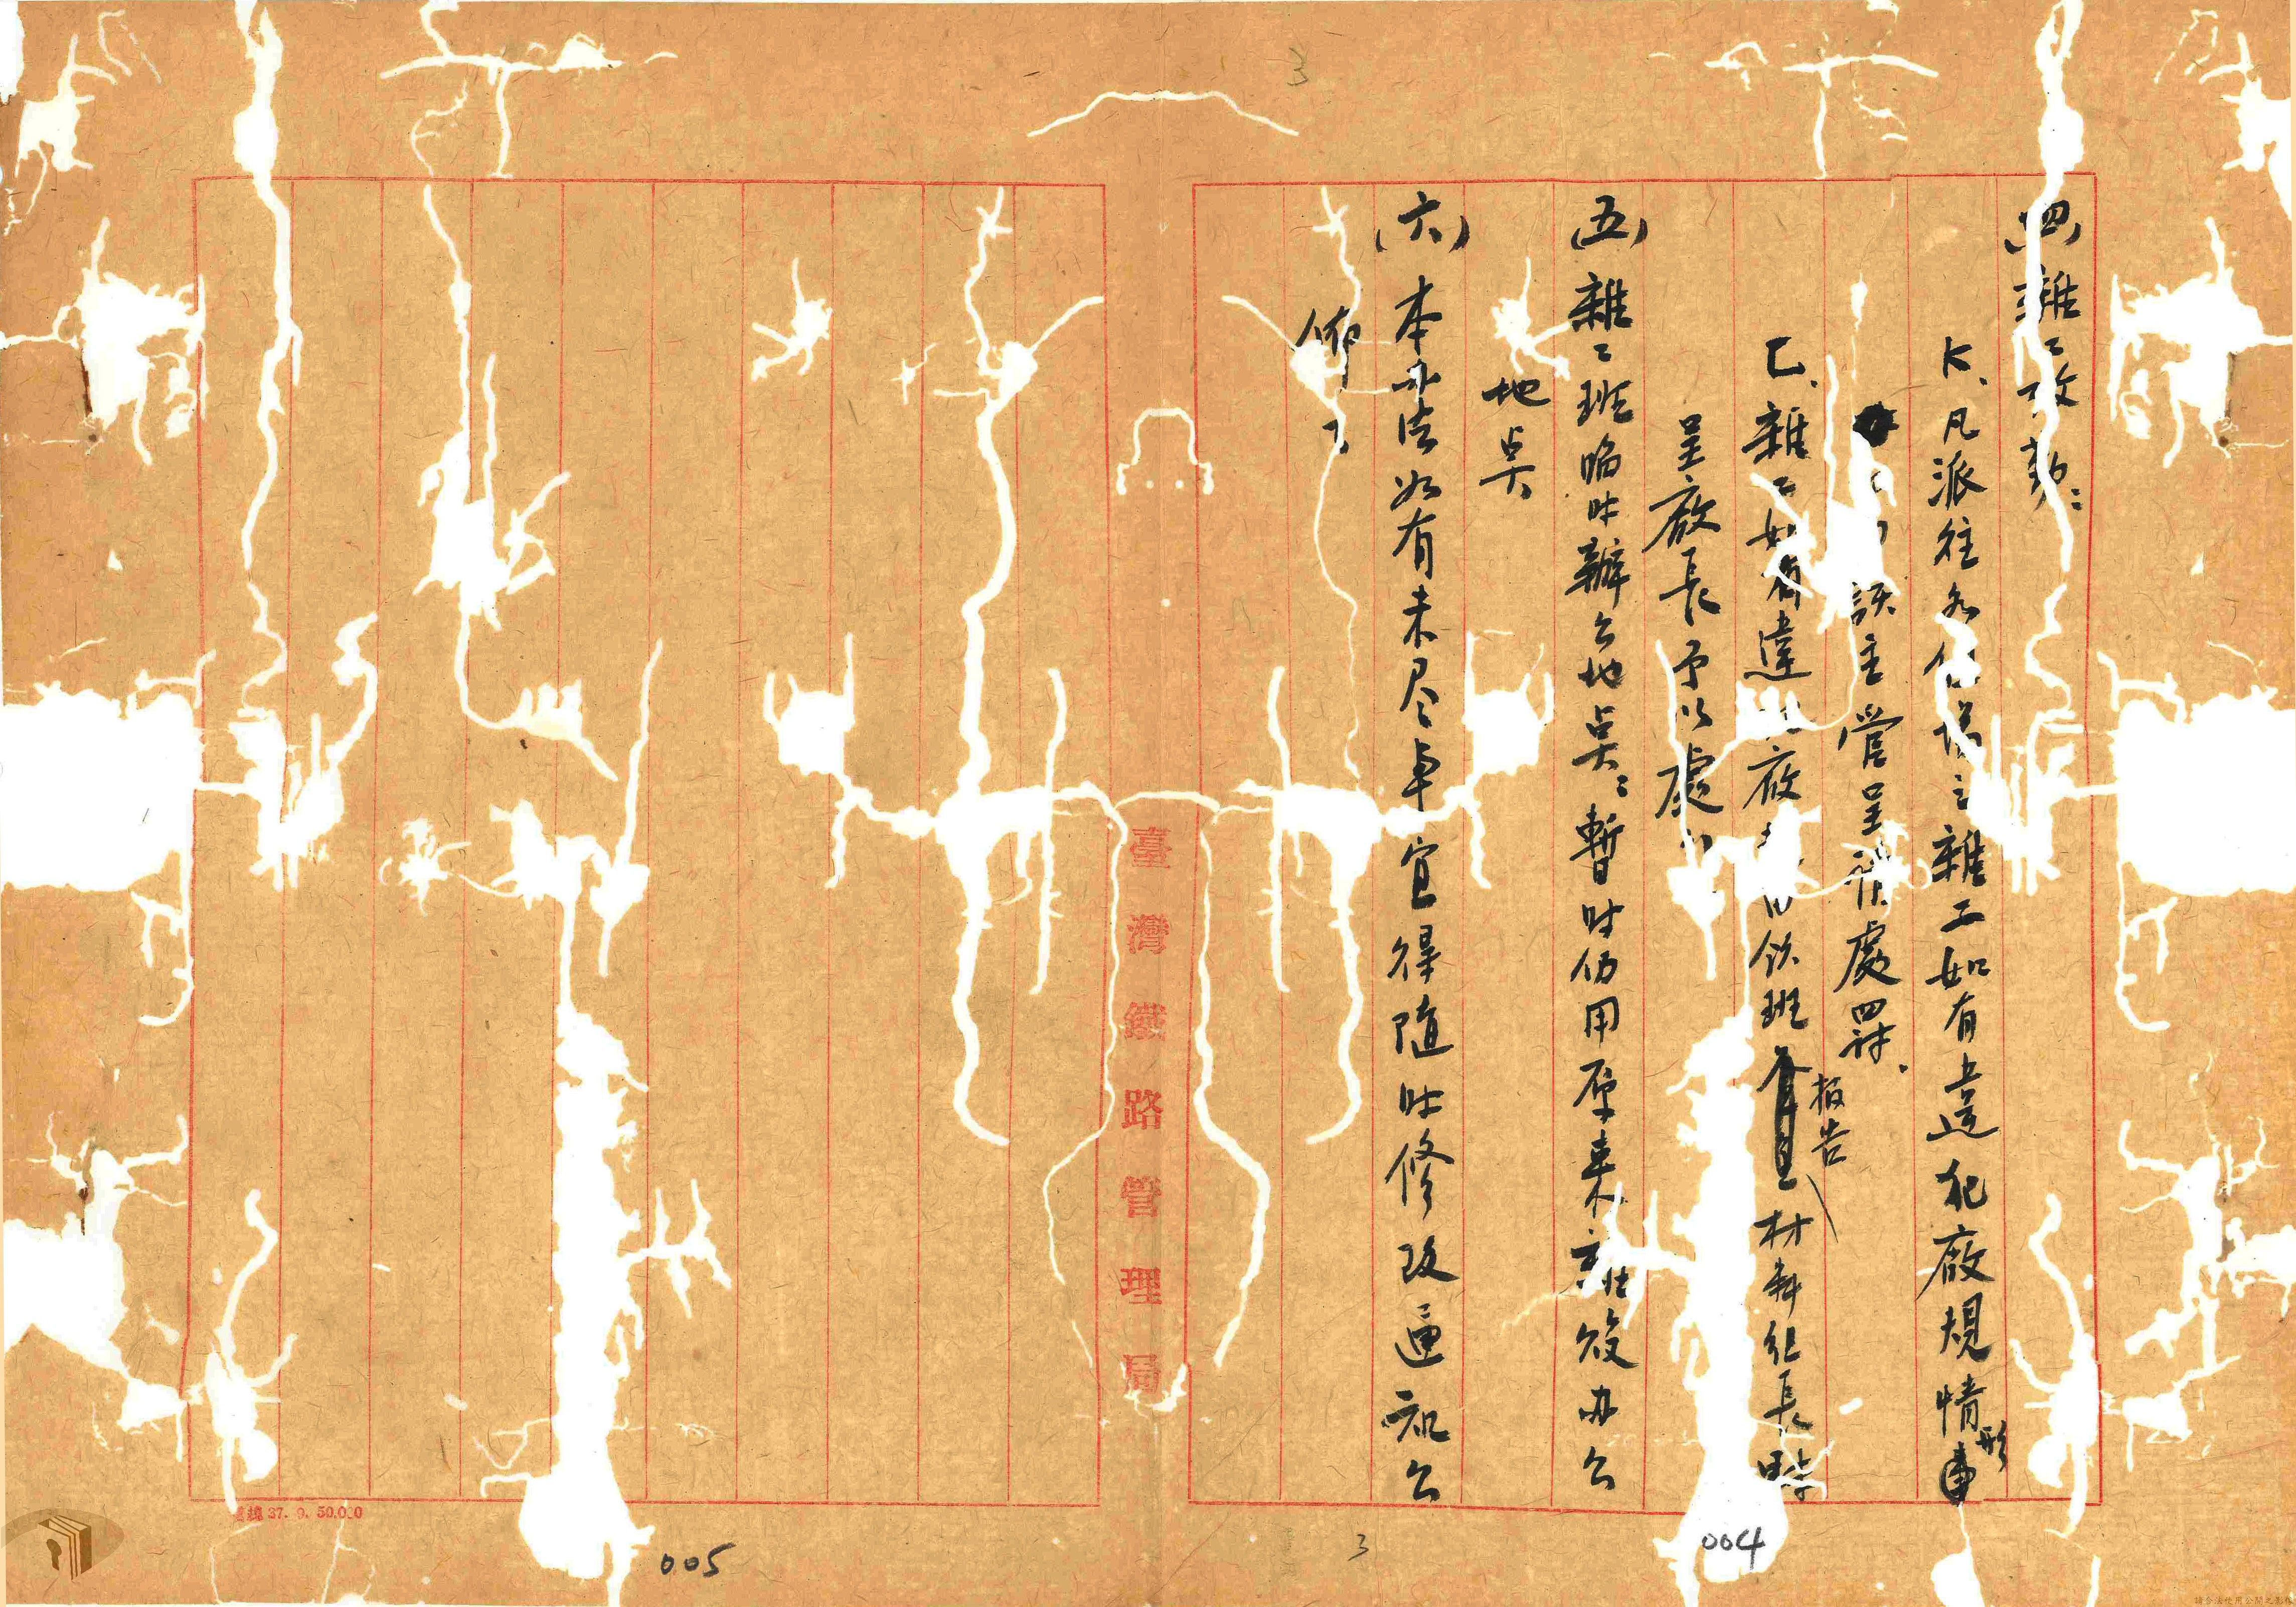 3
(四)雜工攷勤:
K、凡派往各伯塲之雜工如有違犯廠規情形
該主管呈請處罰。
乙、雜工如有違 廠 飭班 報告材料組長
呈廠長予以處
(五)雜工班臨时辦公地点:暫时仍用原来雜役办公
地点
(六)本办法如有未尽事宜得隨时修改通知公
佈之
臺灣鐵路管理局
37. 9. 50,000
005
3
004